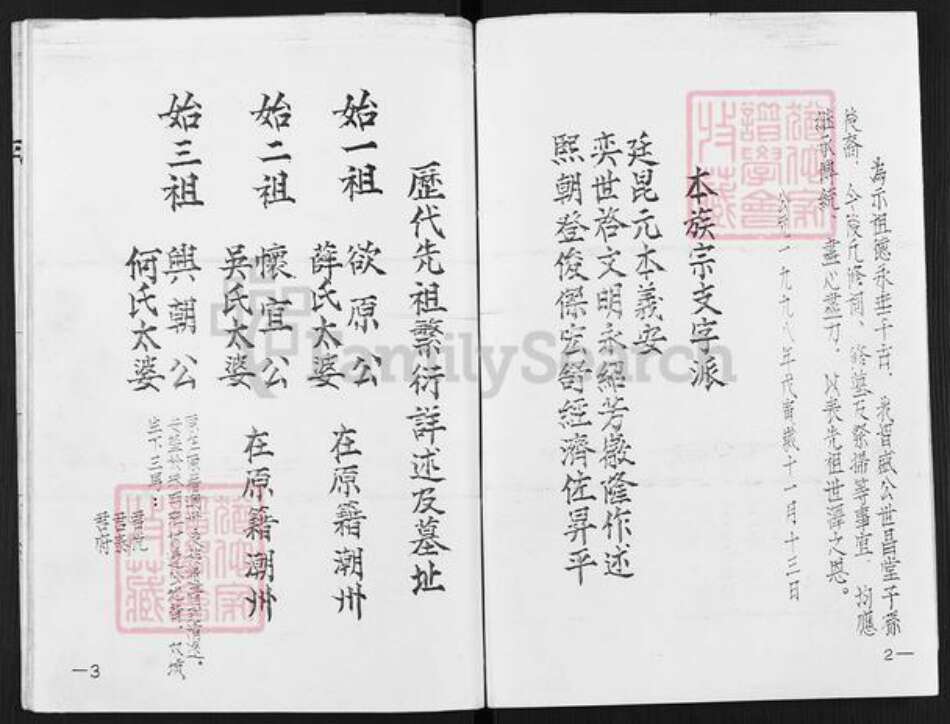 為示祖德永垂千古，我晋威公世昌堂子孫
後裔，今後凡修祠、修墓及祭掃等事宜，均應
繼承傳統，盡心盡力，以表先祖世澤之恩。
公元一九九八年戊寅歲十一月十三日
本族宗支字派
廷昆元本義安
奕世啓文明永紹芳徽隆作述
熙朝登俊傑宏舒經濟佐昇平
2—
歷代先祖繁衍詳述及墓址
始一祖 欲原公 在原籍潮州
薛氏太婆
始二祖 懷宜公 在原籍潮州
吳氏太婆
始三祖 興朝公
何氏太婆
生下三男：
君府
—3
FamilySearch